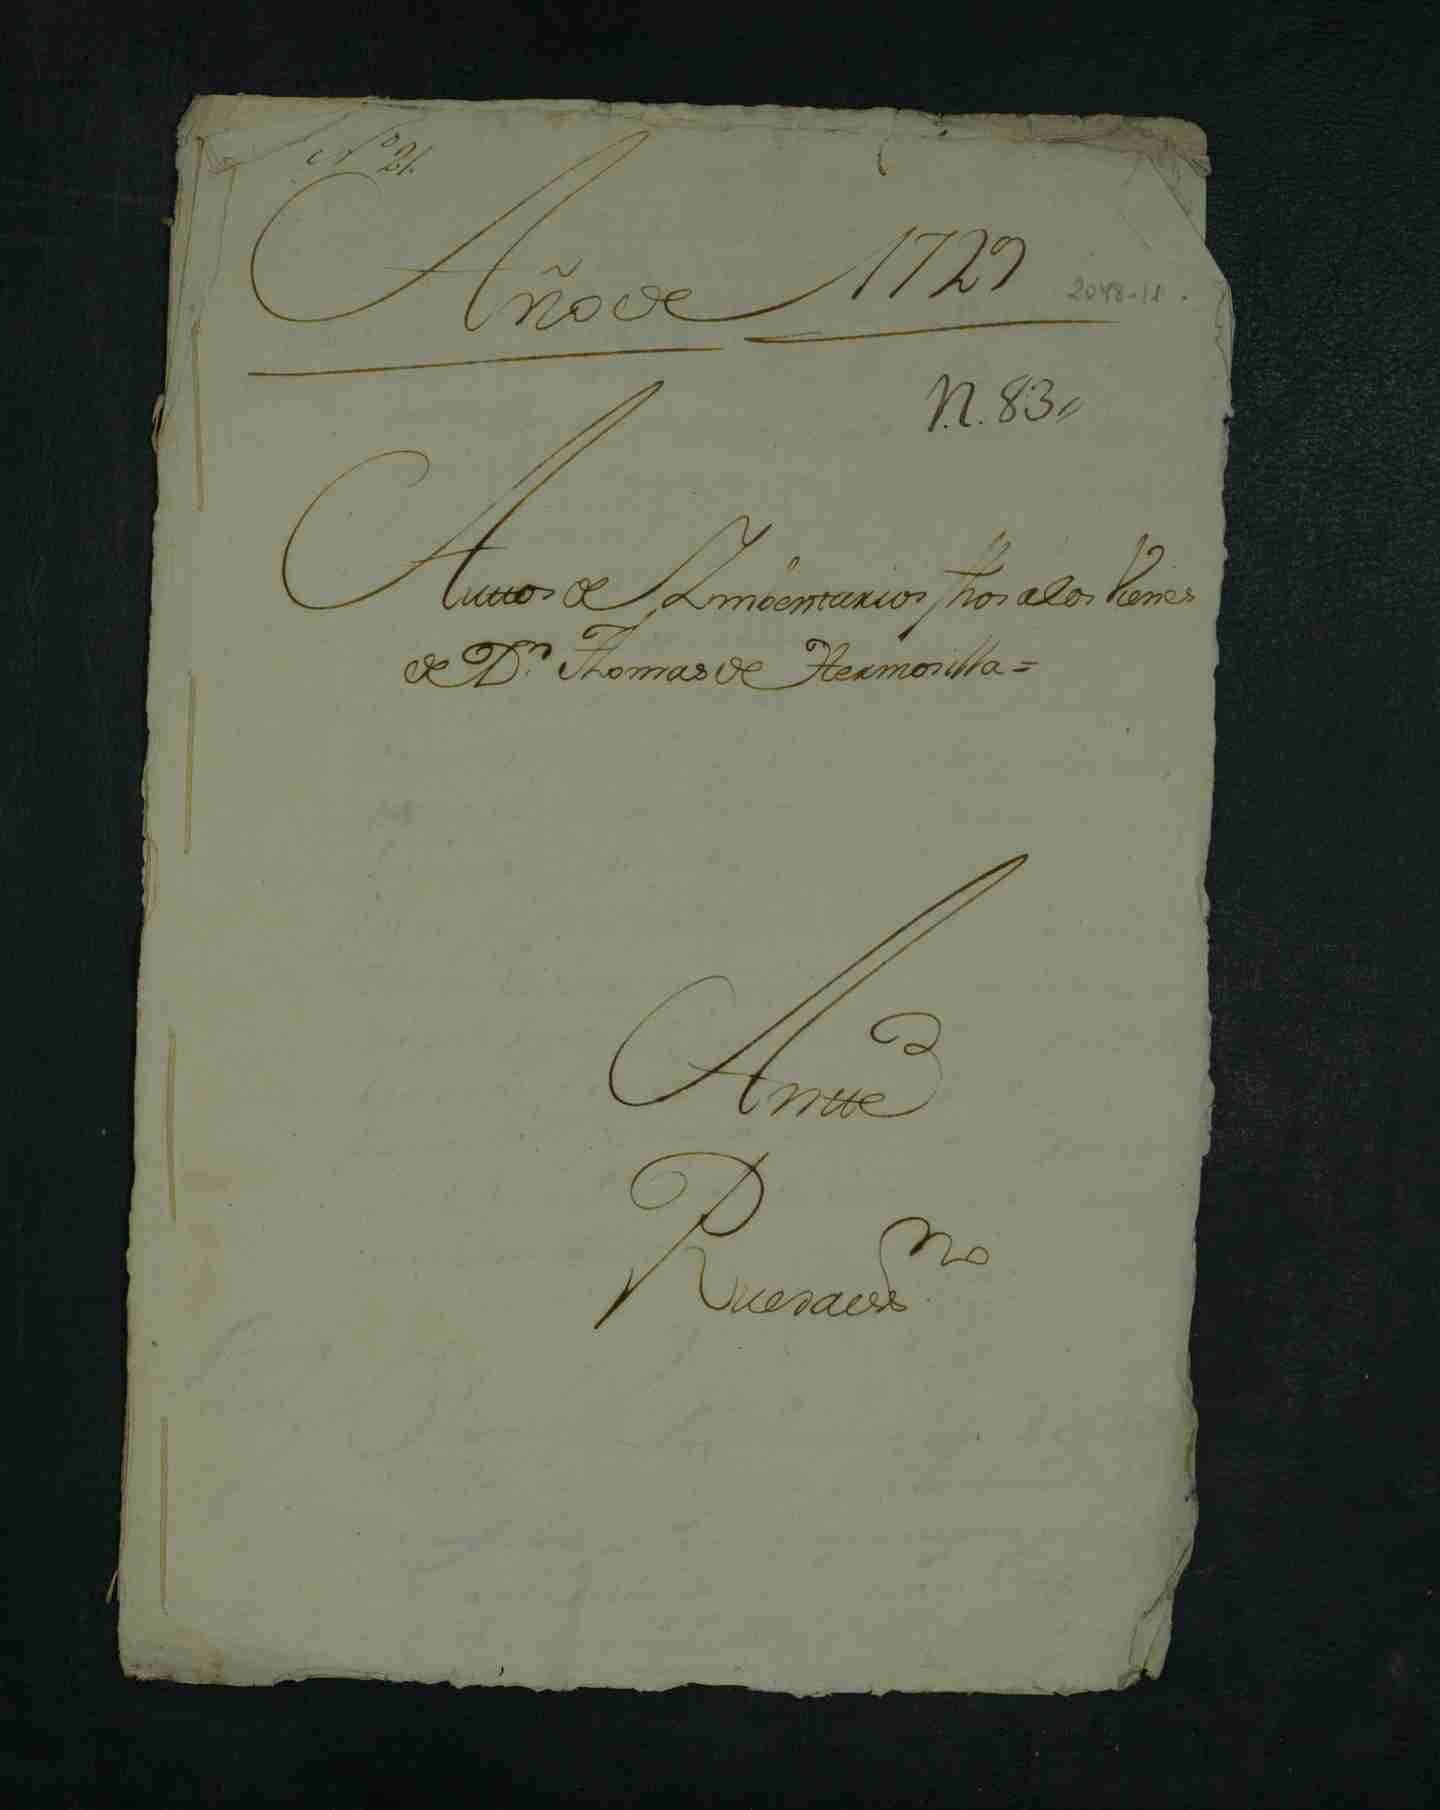 Nº 21.
Año de 1729
2048-11.
N. 83,,
Auttos de Imbentarios fhos a los Vienes
de Dn. Thomas de Hermosilla =
Antte
Rueda essno